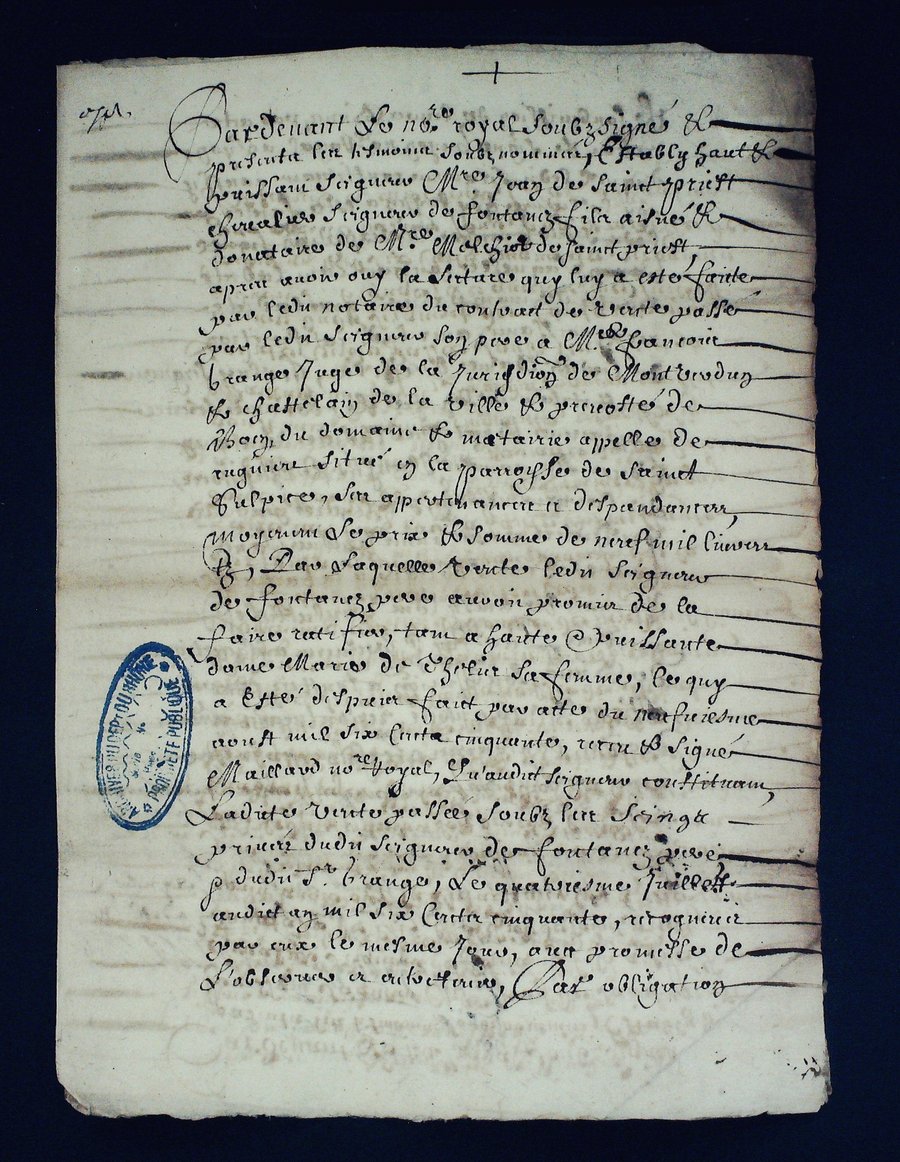 Pardevant Le no.re royal soubz signé &
presentz les tesmoins soubz nommés, Estably haut &
puissant seigneur Mre Jean de sainct priest
chevalier seigneur de fontanez filz aisné &
donataire de Mre Melchior de sainct priest,
apres avoir ouy la lecture quy luy a esté faite
par ledit notaire du contract de vente passé
par ledit seigneur son pere a M.re françois
brange Juge de la Jurisdion de Montverdun
& chastelain de la ville & prevosté de
Boen, du domaine & metairie appellé de
situé en la parroisse de sainct
Sulpice, ses appertenances et despandances,
moyennant Le prix & somme de neuf mil livres
tz, Par Laquelle vente ledit seigneur
de fontanez pere auroit promis de la
faire ratifier, tant a haute & Puissante
dame Marie de Thelis sa femme, le quy
a Esté despuis fait par acte du neufviesme
aoust mil six Centz cinquante, receu & signé
Maillard no.re Royal, Qu'audict seigneur constituant,
Ladite vente passée soubz les Seings
privés dudit seigneur de fontanez pere
& dudit sr. brange, Le quatriesme Juillet
audict an mil six Centz cinquante, recogneus
par eux le mesme Jour, avec promesse de
L'observer et entretenir, Par obligation
ARCHIVES DU DEPT DU RHÔNE
PROPRIÉTÉ PUBLIQUE